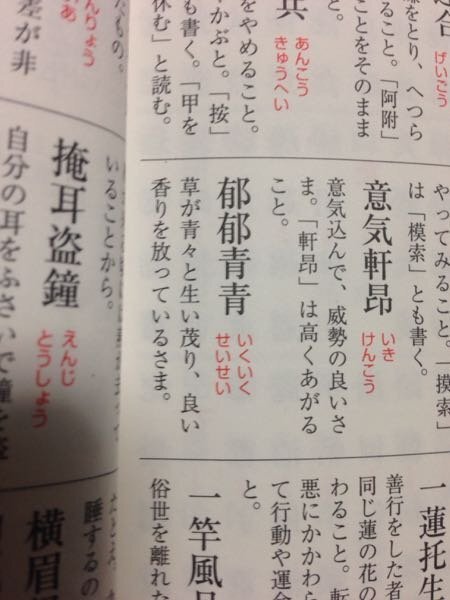 げいこう
をとり、へつら
ことをそのまま
。「阿附」
兵
あんこう
きゅうへい
をやめること。
かぶと。「按」
も書く。「甲を
休む」と読む。
やってみること。「摸索」
は「模索」とも書く。
意気軒昂
いき
けんこう
意気込んで、威勢の良いさ
ま。「軒昂」は高くあがる
こと。
郁郁青青
いくいく
せいせい
草が青々と生い茂り、良い
香りを放っているさま。
一蓮托生
善行をした者
同じ蓮の花の
わること。転
悪にかかわら
て行動や運命
と。
一竿風月
俗世を離れ
んりょう
たもの。
差が非
いることから。
掩耳盗鐘
えんじ
とうしょう
自分の耳をふさいで鐘を盗
睡するの
横眉